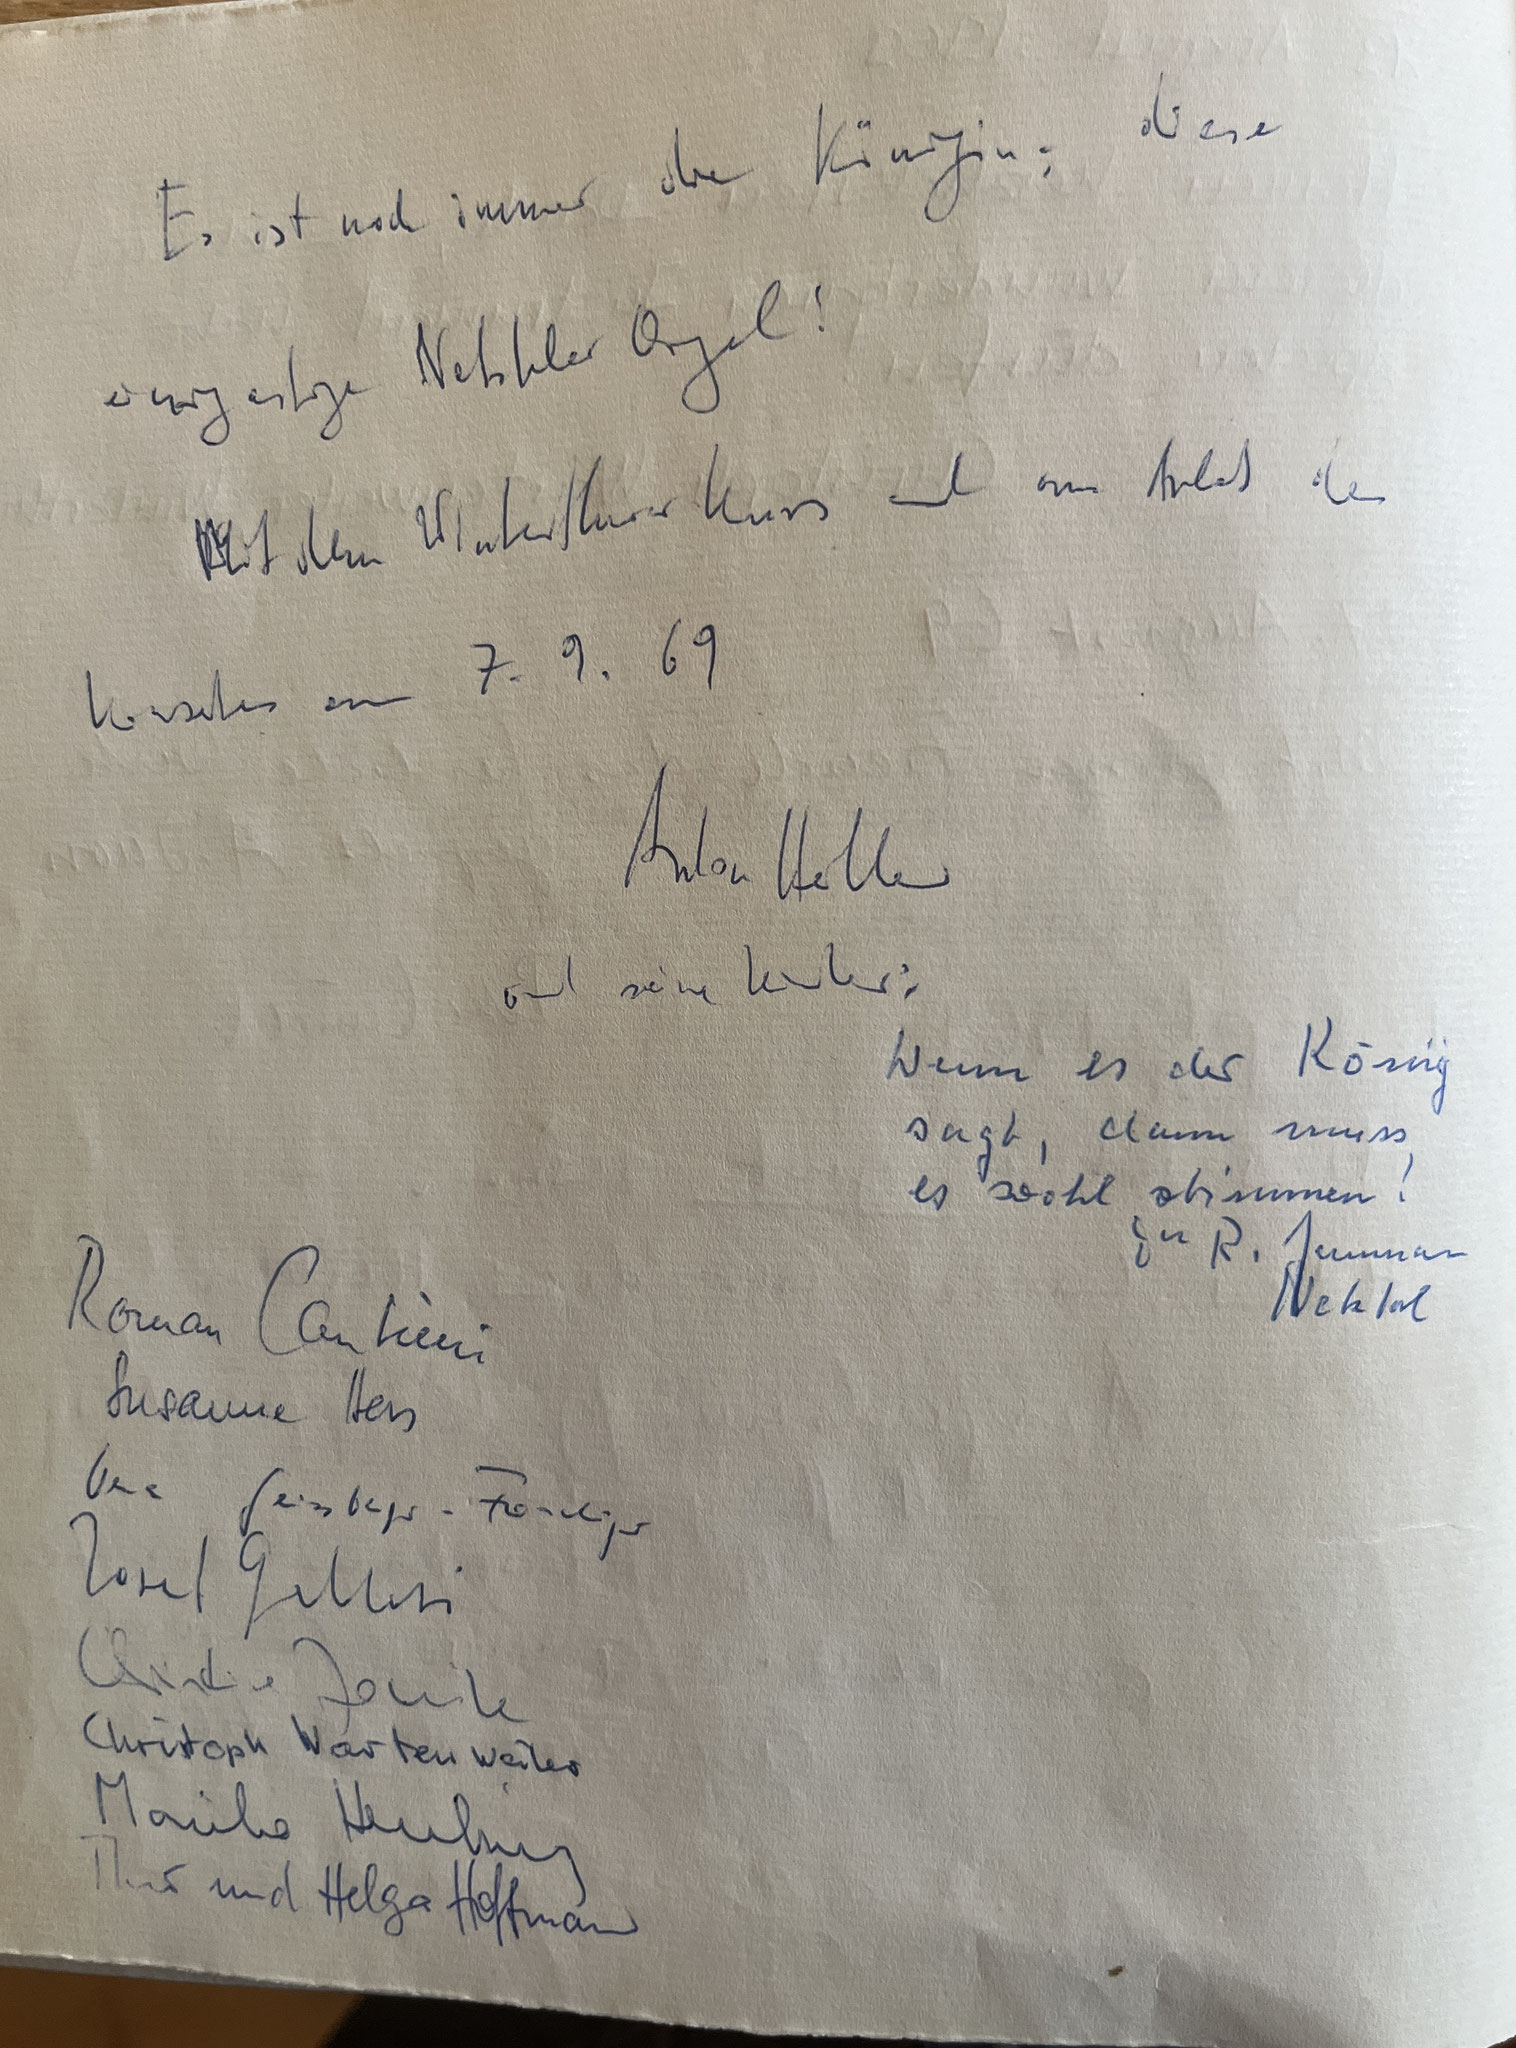 Es ist noch immer die Königin: diese
einzigartige Netstaler Orgel!
Mit dem Winterthurer Kurs und am Anlaß des
Konzertes am 7. 9. 69
Anton Heiller
und seine Kinder:
Wenn es der König
sagt, dann muss
es wohl stimmen!
R.
Netstal
Roman Cantieni
Susanne Hess
Josef
Christine
Christoph Wartenweiler
Marika
und Helga Hoffmann